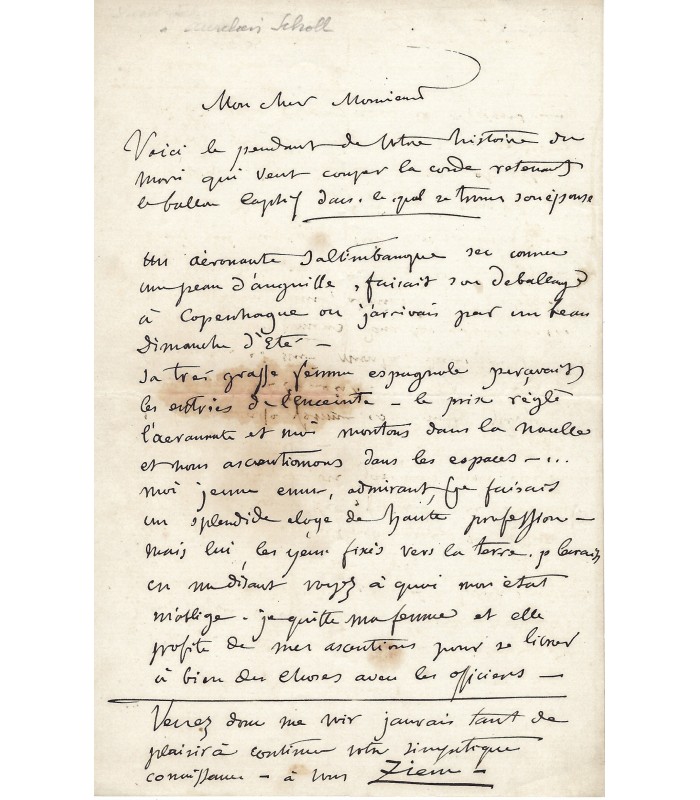 Aurélien Scholl
Mon cher Monsieur
Voici le pendant de votre histoire du
mari qui veut couper la corde retenant
le ballon captif dans lequel se trouve son épouse
Un aéronaute saltimbanque sec comme
une peau d'anguille, faisait son deballage
à Copenhague ou j'arrivais par un beau
Dimanche d'Eté -
Sa tres grasse femme espagnole percevait
les entrées de l'enceinte - le prix réglé
l'aeronaute et moi montons dans la nacelle
et nous ascentionnons dans les espaces - ...
moi jeune emu, admirant, je faisais
un splendide eloge de haute profession -
mais lui, les yeux fixés vers la terre. pleurait
en me disant voyez à quoi mon état
m'oblige - je quitte ma femme et elle
profite de mes ascentions pour se livrer
à bien des choses avec les officiers -
Venez donc me voir jaurais tant de
plaisir à continuer votre simpatique
connaissance - à vous Ziem -